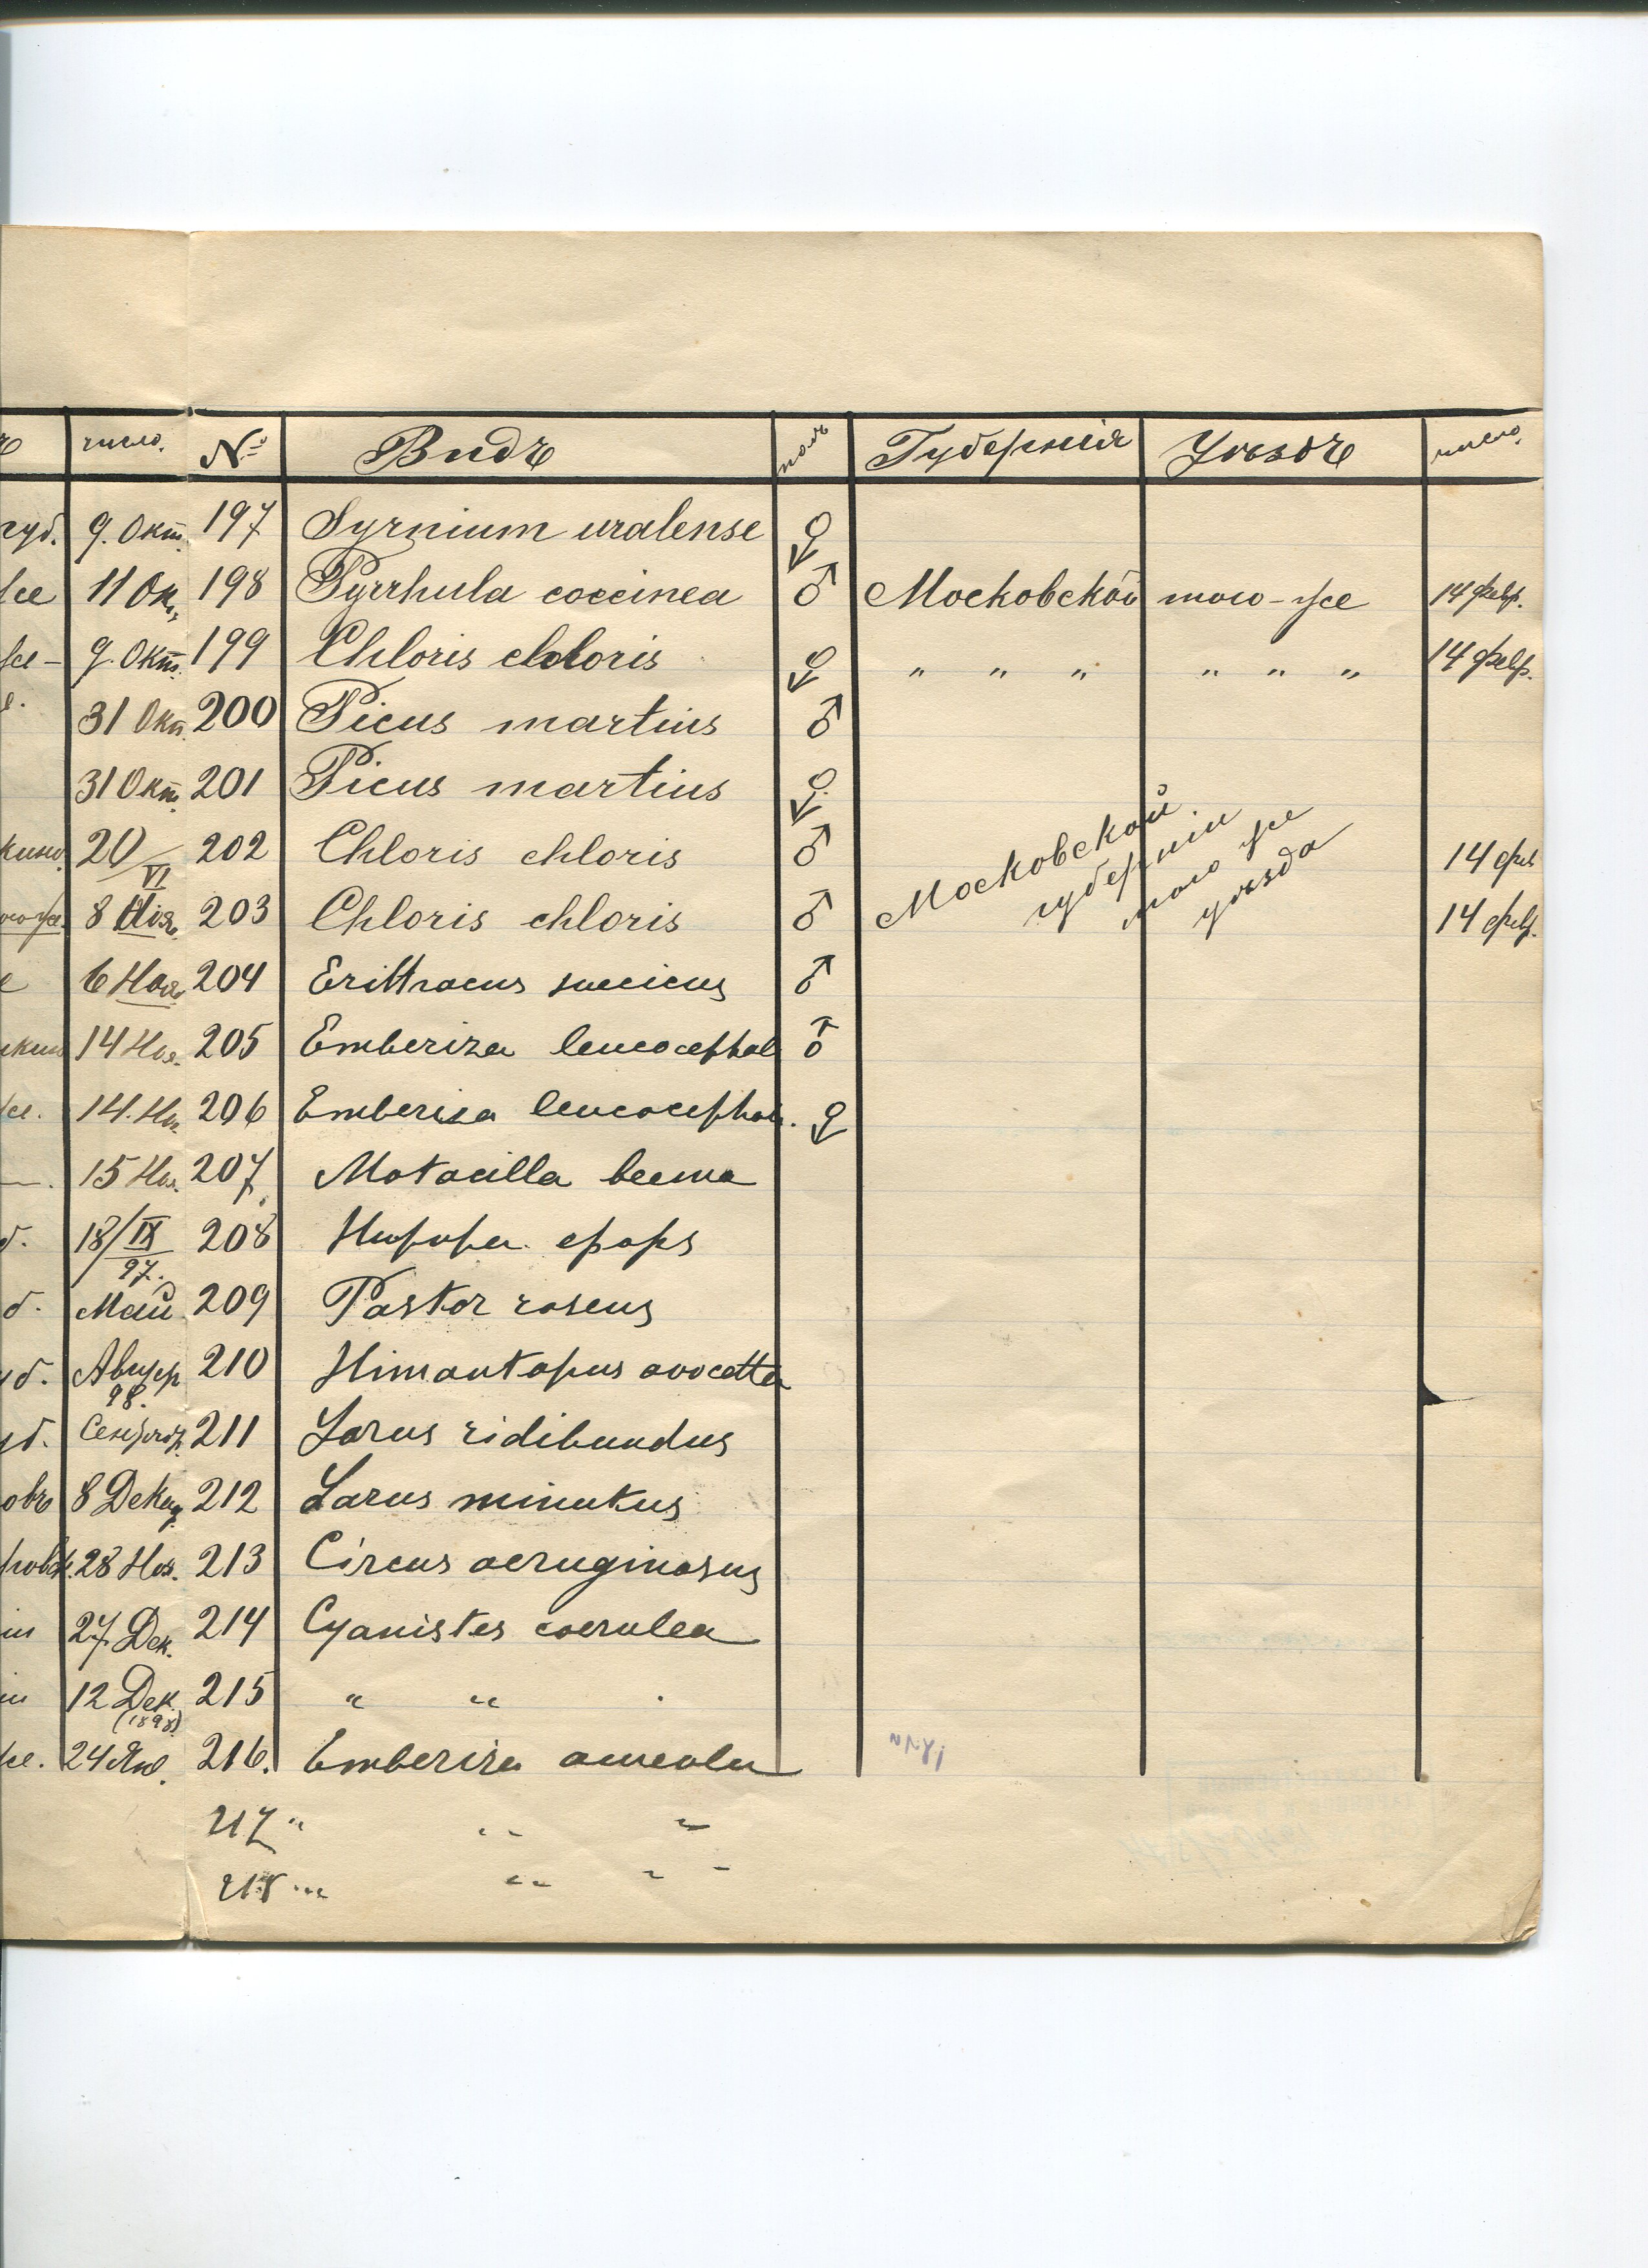 число. № Видъ полъ Губернія Уѣздъ число.
губ. 9. Окт. 197 Syrnium uralense ♀
же 11 Ок. 198 Pyrrhula coccinea ♂ Московской того-же 14 февр.
же - 9. Окт. 199 Chloris chloris ♀ „ „ „ „ „ „ 14 февр.
31 Окт. 200 Picus martius ♂
31 Окт. 201 Picus martius ♀
20/VI 202 Chloris chloris ♂ Московской губерніи того же уѣзда 14 фев
8 Ноя. 203 Chloris chloris ♂ 14 февр.
6 Ноя. 204 Erittracus suecicus ♂
14 Ноя. 205 Emberiza leucocephal ♂
же. 14. Но. 206 Emberiza leucocephal. ♀
15 Ноя. 207 Motacilla
18/IX 97. 208 Hupupa epops
Май 209 Pastor roseus
98. 210 Himantopus avocetta
211 Larus ridibundus
8 Декаб. 212 Larus minutus
28 Ноя. 213 Circus aeruginosus
27 Дек. 214 Cyanistes coerulea
12 Дек. (1898) 215 " "
же. 24 Янв. 216. Emberiza aureola
217 " " "
218 " " " "